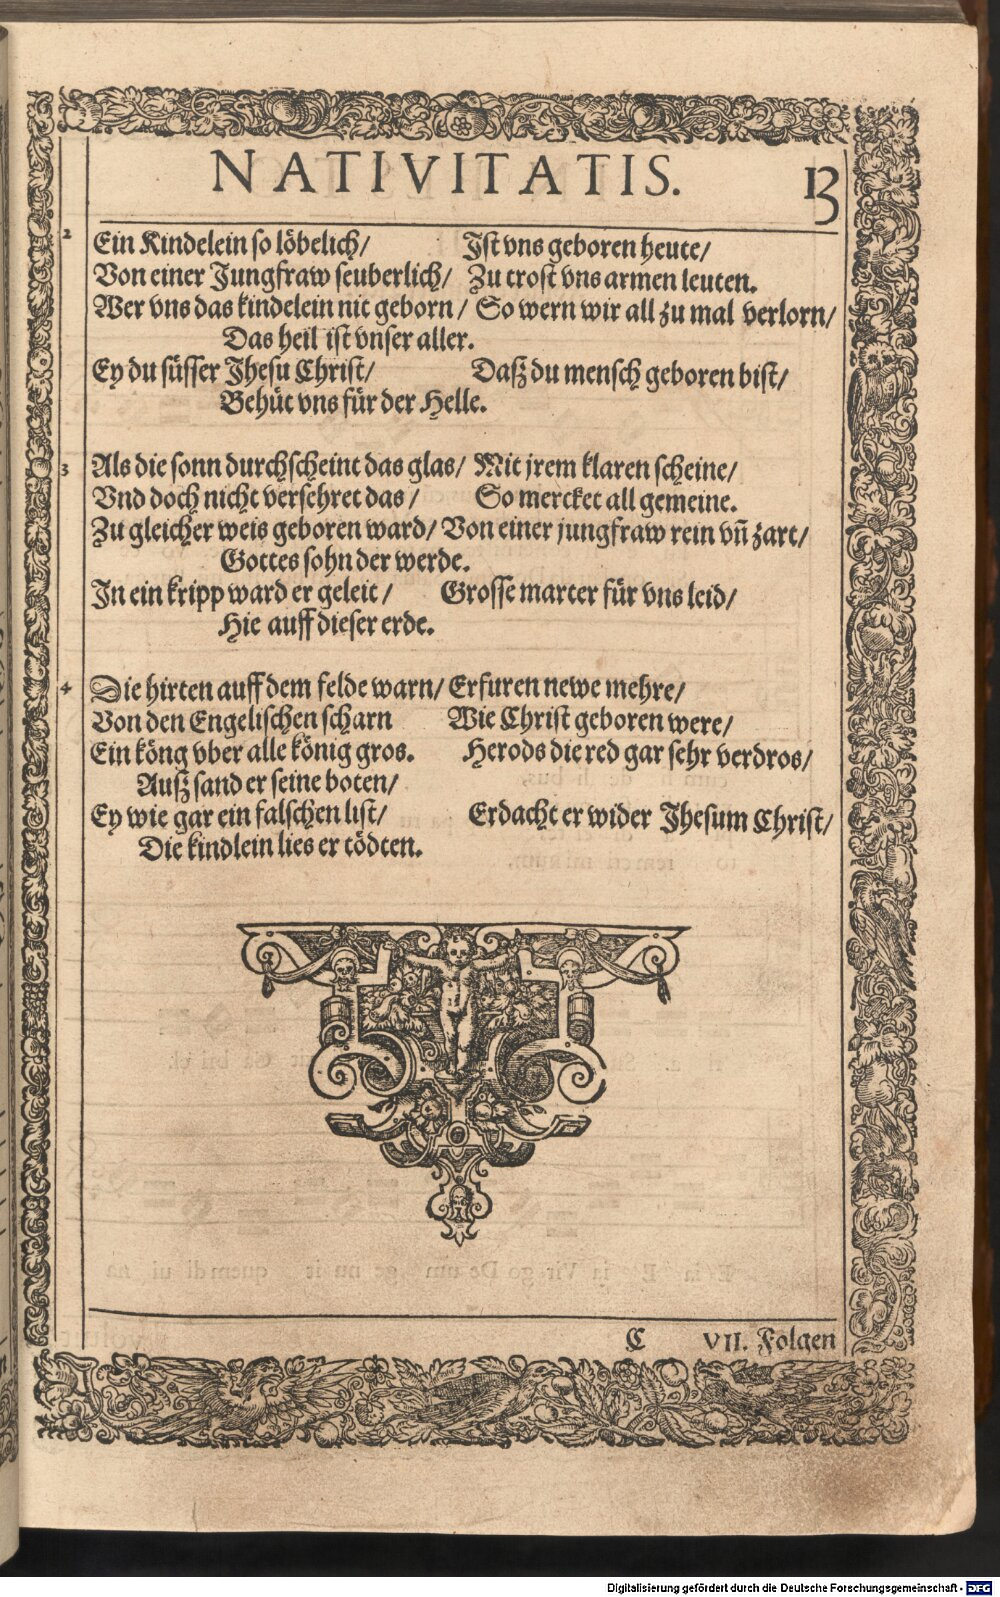 NATIVITATIS. 13
2 Ein Kindelein so löbelich/ Ist vns geboren heute/
Von einer Jungfraw seuberlich/ Zu trost vns armen leuten.
Wer vns das kindelein nit geborn/ So wern wir all zu mal verlorn/
Das heil ist vnser aller.
Ey du süsser Jhesu Christ/ Daß du mensch geboren bist/
Behüt vns für der Helle.
3 Als die sonn durchscheint das glas/ Mit jrem klaren scheine/
Vnd doch nicht versehret das/ So mercket all gemeine.
Zu gleicher weis geboren ward/ Von einer jungfraw rein vñ zart/
Gottes sohn der werde.
In ein kripp ward er geleit/ Grosse marter für vns leid/
Hie auff dieser erde.
4 Die hirten auff dem felde warn/ Erfuren newe mehre/
Von den Engelischen scharn Wie Christ geboren were/
Ein köng vber alle könig gros. Herods die red gar sehr verdros/
Außsand er seine boten/
Ey wie gar ein falschen list/ Erdacht er wider Jhesum Christ/
Die kindlein lies er tödten.
C VII. Folgen
Digitalisierung gefördert durch die Deutsche Forschungsgemeinschaft - DFG